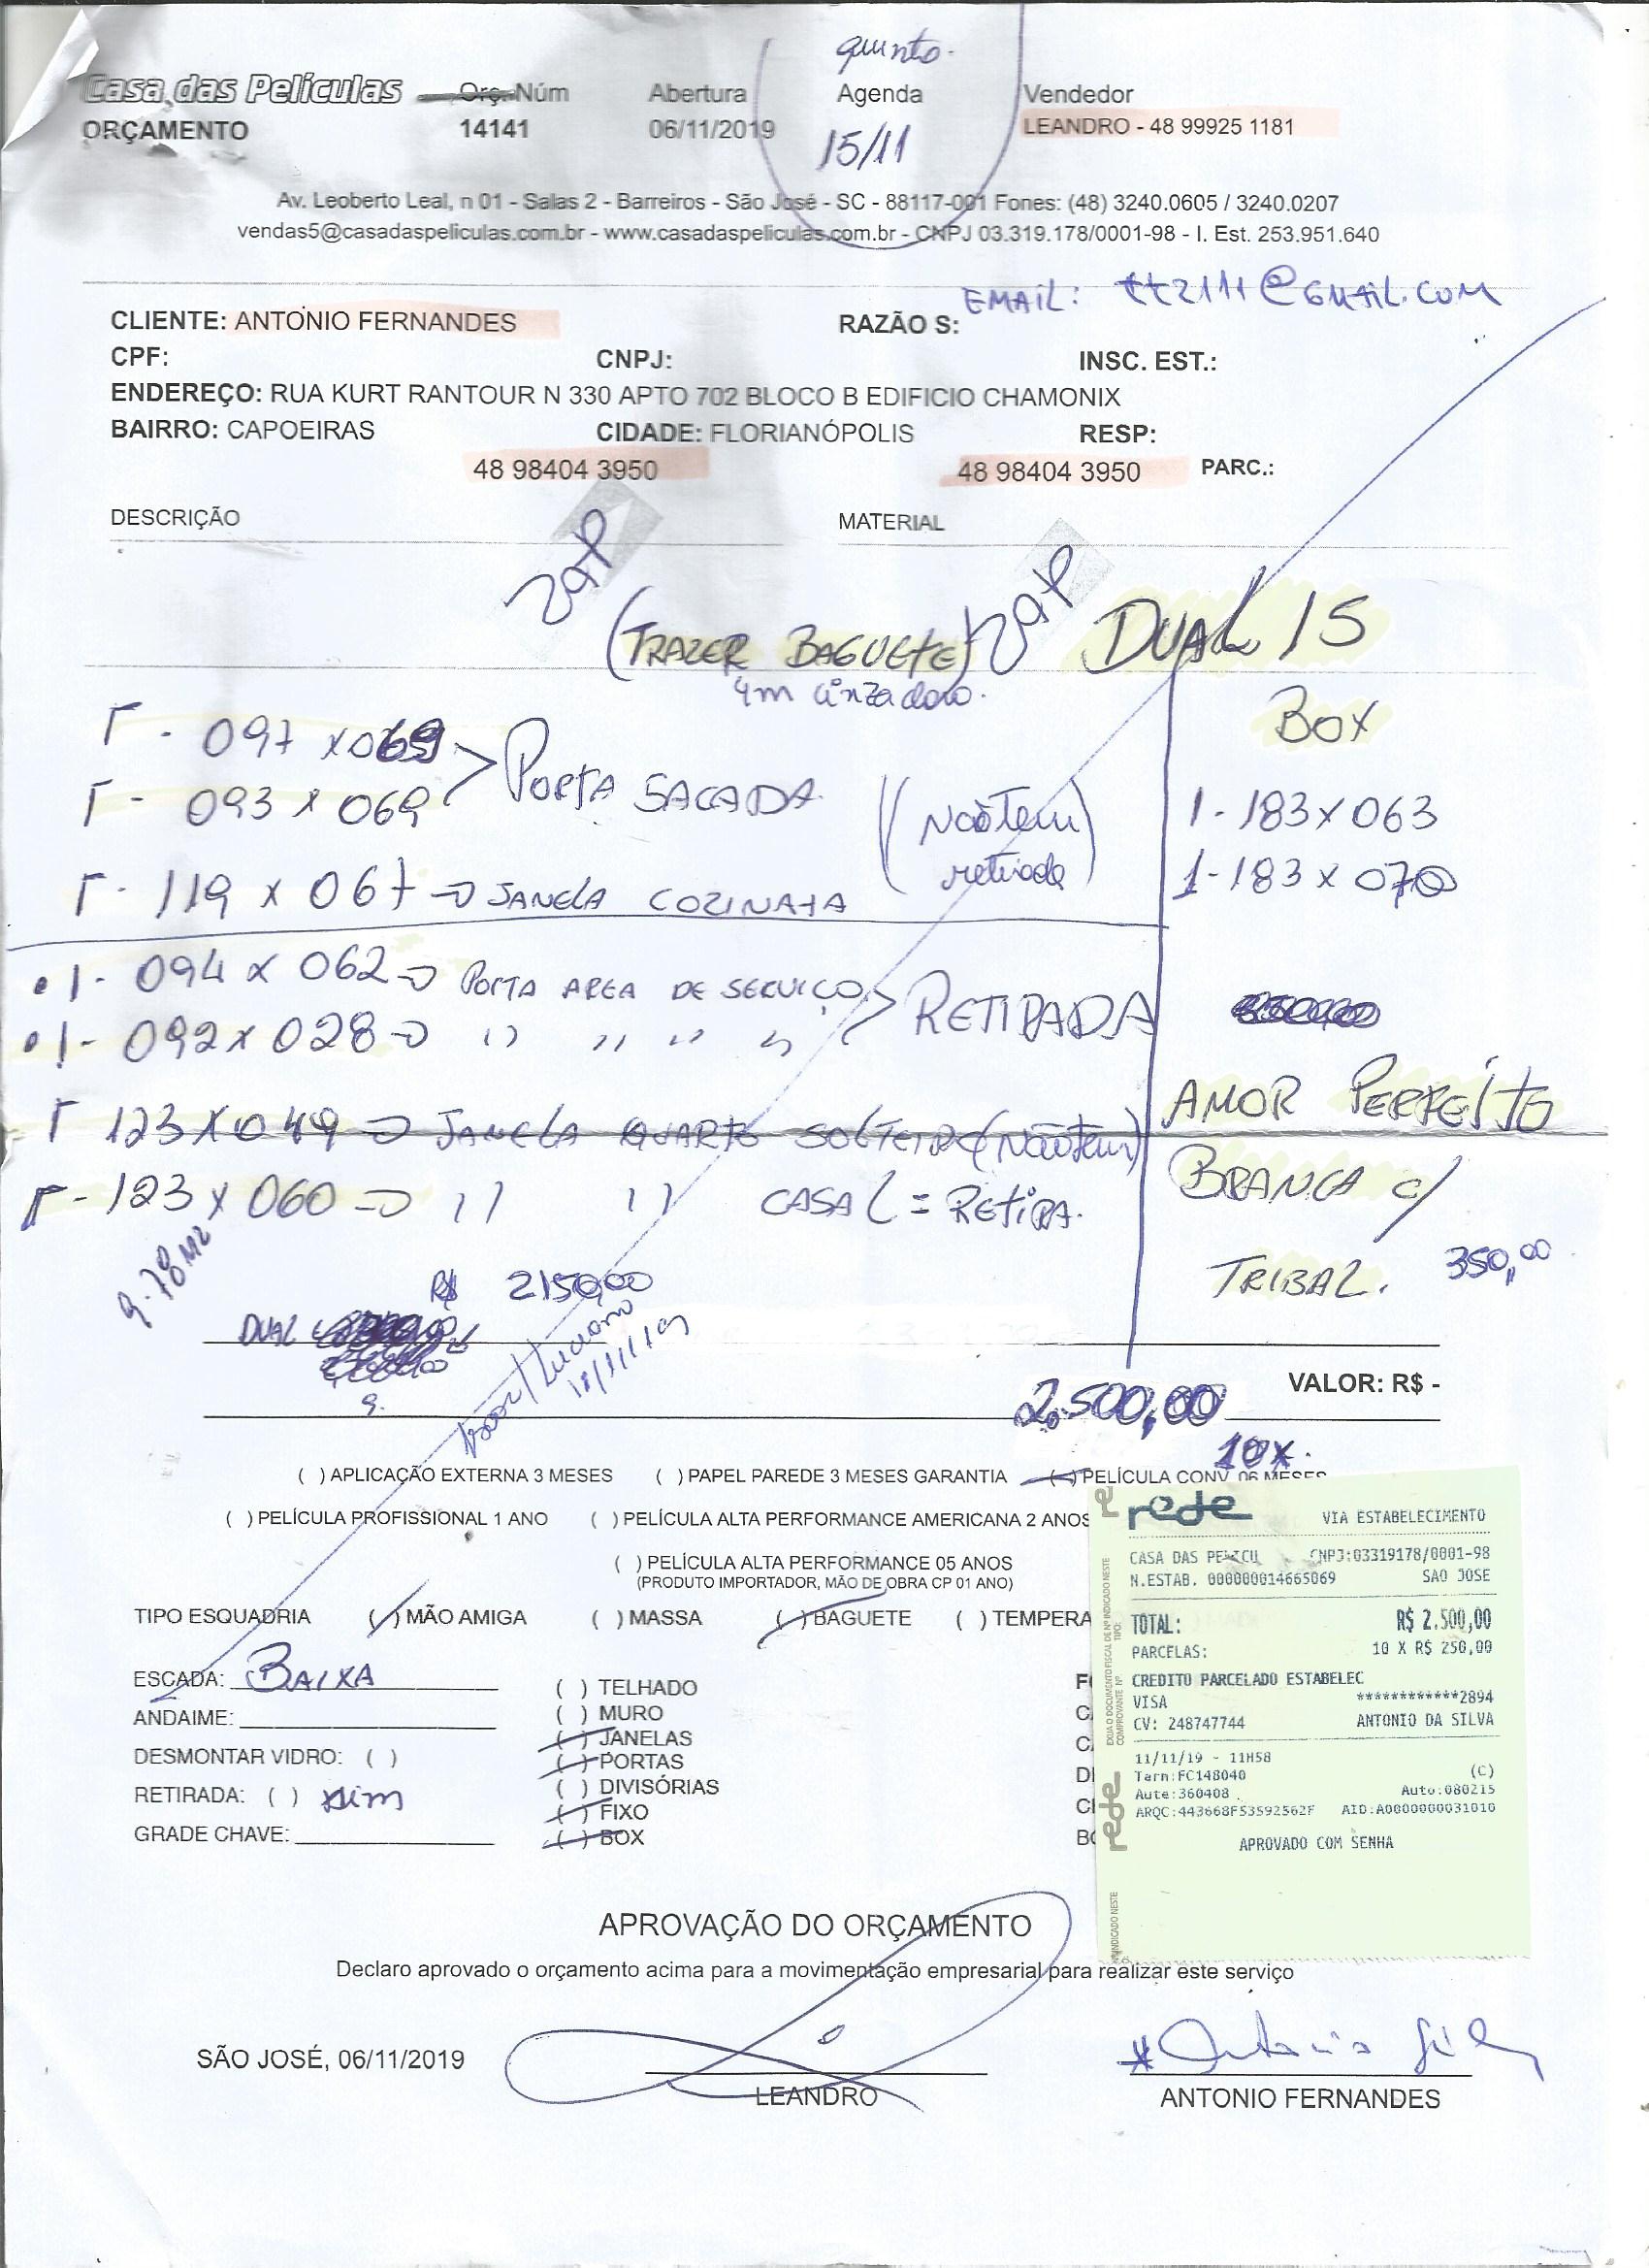 quinta.
Casa das Películas Orç. Núm Abertura Agenda Vendedor
ORÇAMENTO 14141 06/11/2019 15/11 LEANDRO - 48 99925 1181
Av. Leoberto Leal, n 01 - Salas 2 - Barreiros - São José - SC - 88117-001 Fones: (48) 3240.0605 / 3240.0207
vendas5@casadaspeliculas.com.br - www.casadaspeliculas.com.br - CNPJ 03.319.178/0001-98 - I. Est. 253.951.640
EMAIL: @GMAIL.COM
CLIENTE: ANTÓNIO FERNANDES RAZÃO S:
CPF: CNPJ: INSC. EST.:
ENDEREÇO: RUA KURT RANTOUR N 330 APTO 702 BLOCO B EDIFICIO CHAMONIX
BAIRRO: CAPOEIRAS CIDADE: FLORIANÓPOLIS RESP:
48 98404 3950 48 98404 3950 PARC.:
DESCRIÇÃO MATERIAL
zap zap
(TRAZER BAGUETE) DUAL 15
4m cinza claro. BOX
097 x 069
093 x 069 > PORTA SACADA (Não tem retirada) 1-183 x 063
119 x 067 → JANELA COZINHA 1-183 x 070
1- 094 x 062 → PORTA AREA DE SERVIÇO
1- 092 x 028 → '' '' '' '' > RETIRADA
123 x 049 → JANELA QUARTO SOLTEIRO (Não tem) AMOR PERFEITO
123 x 060 → '' '' CASAL = RETIRA. BRANCA c/
9.78 M2 TRIBAL. 350,00
R$ 2150,00
DUAL
Luciano
VALOR: R$ -
2.500,00
10x.
( ) APLICAÇÃO EXTERNA 3 MESES ( ) PAPEL PAREDE 3 MESES GARANTIA ( ) PELÍCULA CONV. 06 MESES
( ) PELÍCULA PROFISSIONAL 1 ANO ( ) PELÍCULA ALTA PERFORMANCE AMERICANA 2 ANOS
( ) PELÍCULA ALTA PERFORMANCE 05 ANOS
(PRODUTO IMPORTADOR, MÃO DE OBRA CP 01 ANO)
TIPO ESQUADRIA ( ) MÃO AMIGA ( ) MASSA ( ) BAGUETE ( ) TEMPERA
ESCADA: BAIXA
ANDAIME:
DESMONTAR VIDRO: ( )
RETIRADA: ( ) sim
GRADE CHAVE:
( ) TELHADO
( ) MURO
( ) JANELAS
( ) PORTAS
( ) DIVISÓRIAS
( ) FIXO
( ) BOX
rede VIA ESTABELECIMENTO
CASA DAS PELICU CNPJ:03319178/0001-98
N.ESTAB. 000000014665069 SAO JOSE
TOTAL: R$ 2.500,00
PARCELAS: 10 X R$ 250,00
CREDITO PARCELADO ESTABELEC
VISA ************2894
CV: 248747744 ANTONIO DA SILVA
11/11/19 - 11H58
Term:FC148040 (C)
Aute:360408 Auto:080215
ARQC:443668F53592562F AID:A0000000031010
APROVADO COM SENHA
rede
APROVAÇÃO DO ORÇAMENTO
Declaro aprovado o orçamento acima para a movimentação empresarial para realizar este serviço
SÃO JOSÉ, 06/11/2019
LEANDRO ANTONIO FERNANDES